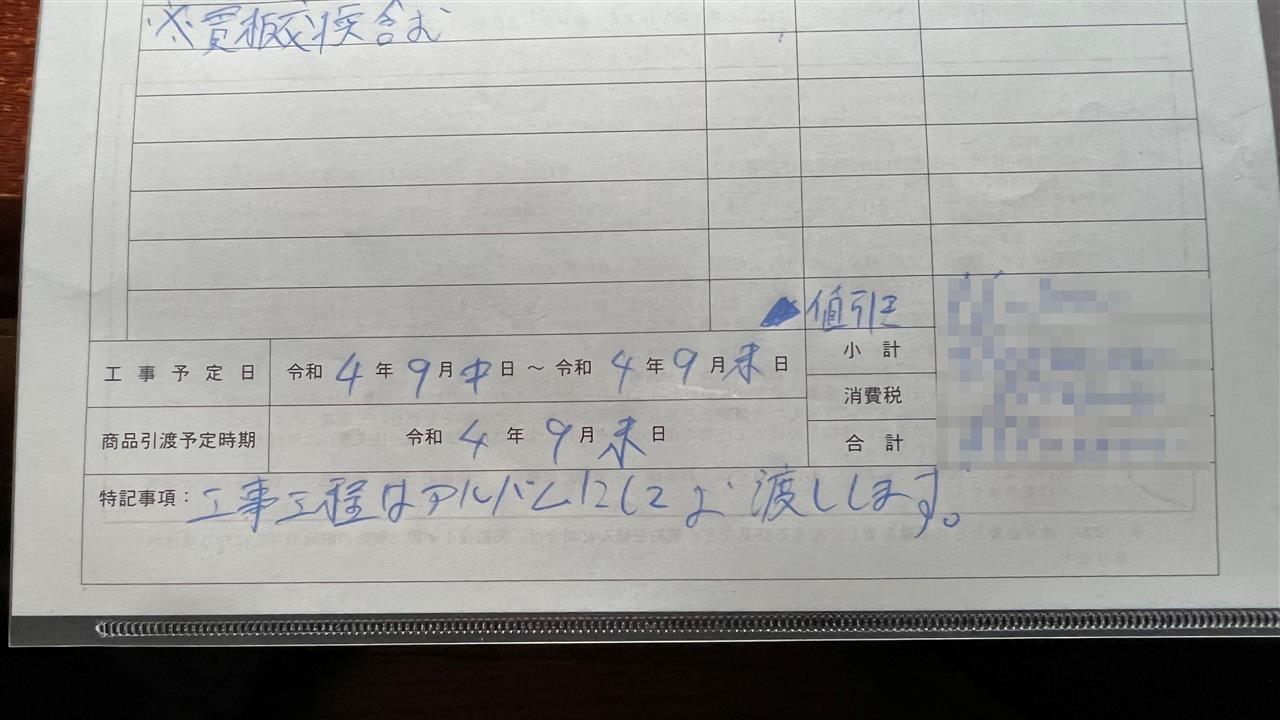 ※貫板交換含む
値引き
工事予定日 令和4年9月中日～令和4年9月末日 小計
消費税
商品引渡予定時期 令和4年9月末日 合計
特記事項：工事工程はアルバムにしてお渡しします。